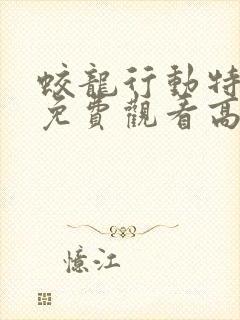 蛟龍行動特
免費觀看高
憶江